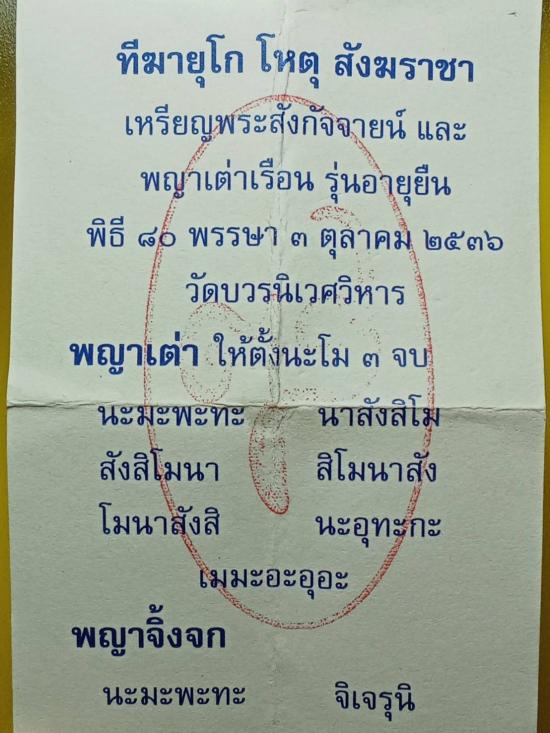 ทีฆายุโก โหตุ สังฆราชา
เหรียญพระสังกัจจายน์ และ
พญาเต่าเรือน รุ่นอายุยืน
พิธี ๘๐ พรรษา ๓ ตุลาคม ๒๕๓๖
วัดบวรนิเวศวิหาร
พญาเต่า ให้ตั้งนะโม ๓ จบ
นะมะพะทะ นาสังสิโม
สังสิโมนา สิโมนาสัง
โมนาสังสิ นะอุทะกะ
เมมะอะอุอะ
พญาจิ้งจก
นะมะพะทะ จิเจรุนิ